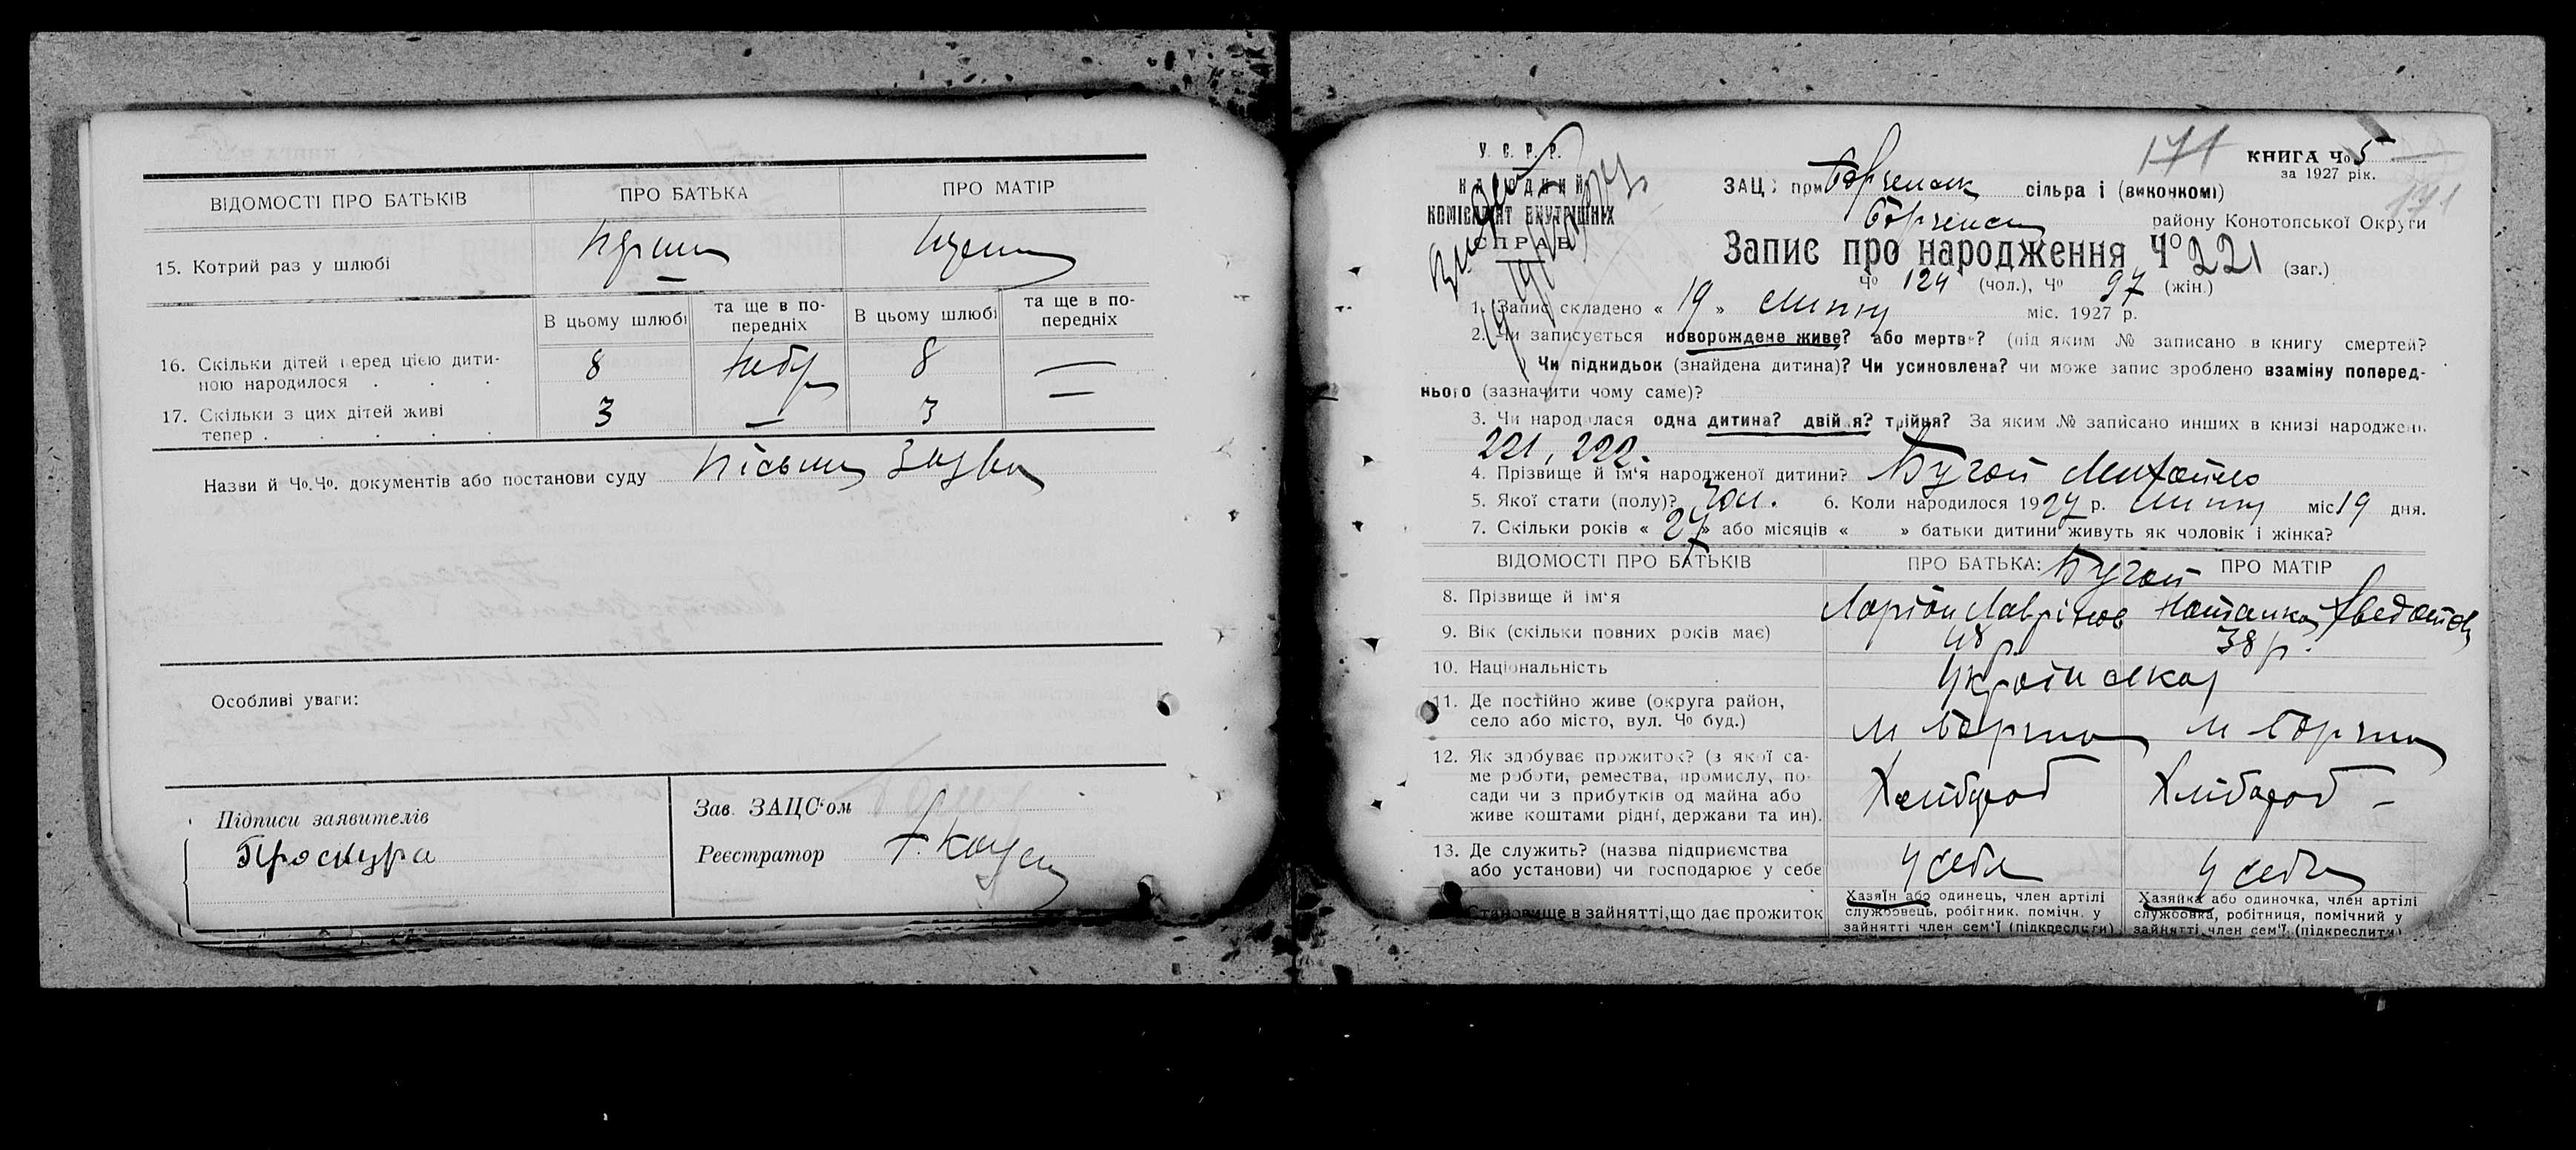 ВІДОМОСТІ ПРО БАТЬКІВ
ПРО БАТЬКА
ПРО МАТІР
15. Котрий раз у шлюбі
В цьому шлюбі
та ще в по-
передніх
В цьому шлюбі
та ще в по-
передніх
16. Скільки дітей перед цією дити-
ною народилося . . .
8
8 —
17. Скільки з цих дітей живі
тепер . . . . .
3 — 3 —
Назви й Чо.Чо. документів або постанови суду
Особливі уваги:
Підписи заявителів
Проскура
Зав. ЗАЦС‘ом
Реєстратор
У. С. Р. Р.
НАРОДНИЙ
КОМІСАРІЯТ ВНУТРІШНІХ
СПРАВ
171
КНИГА Чо 5
за 1927 рік.
171
ЗАЦС при сільраді (викочкомі)
району Конотопської Округи
Запис про народження Чо 221 (заг.)
Чо 124 (чол.), Чо 97 (жін.)
1. Запис складено « 19 » липня міс. 1927 р.
2. Чи записується новорождене живе? або мертве? (під яким № записано в книгу смертей?
Чи підкидьок (знайдена дитина)? Чи усиновлена? чи може запис зроблено взаміну поперед-
нього (зазначити чому саме)?
3. Чи народилася одна дитина? двійня? трійня? За яким № записано инших в книзі народжень
221, 222.
4. Прізвище й ім‘я народженої дитини? Бугай Михайло
5. Якої стати (полу)? чол. 6. Коли народилося 1927 р. липня міс 19 дня.
7. Скільки років « » або місяців « » батьки дитини живуть як чоловік і жінка?
ВІДОМОСТІ ПРО БАТЬКІВ
ПРО БАТЬКА:
Бугай
ПРО МАТІР
8. Прізвище й ім‘я
Ларіон Лаврінов
Наталка
9. Вік (скільки повних років має)
48 р.
38 р.
10. Національність
Українська
11. Де постійно живе (округа район,
село або місто, вул. Чо буд.)
м Борзна
м Борзна
12. Як здобуває прожиток? (з якої са-
ме роботи, ремества, промислу, по-
сади чи з прибутків од майна або
живе коштами рідні, держави та ин).
Хлібороб
Хлібороб –
13. Де служить? (назва підприємства
або установи) чи господарює у себе
У себе
У себе
Становище в зайнятті,що дає прожиток
Хазяїн або одинець, член артілі
службовець, робітник, помічн. у
зайнятті член сем‘ї (підкреслити)
Хазяйка або одиночка, член артілі
службовка, робітниця, помічний у
зайнятті член сем‘ї, (підкреслити)